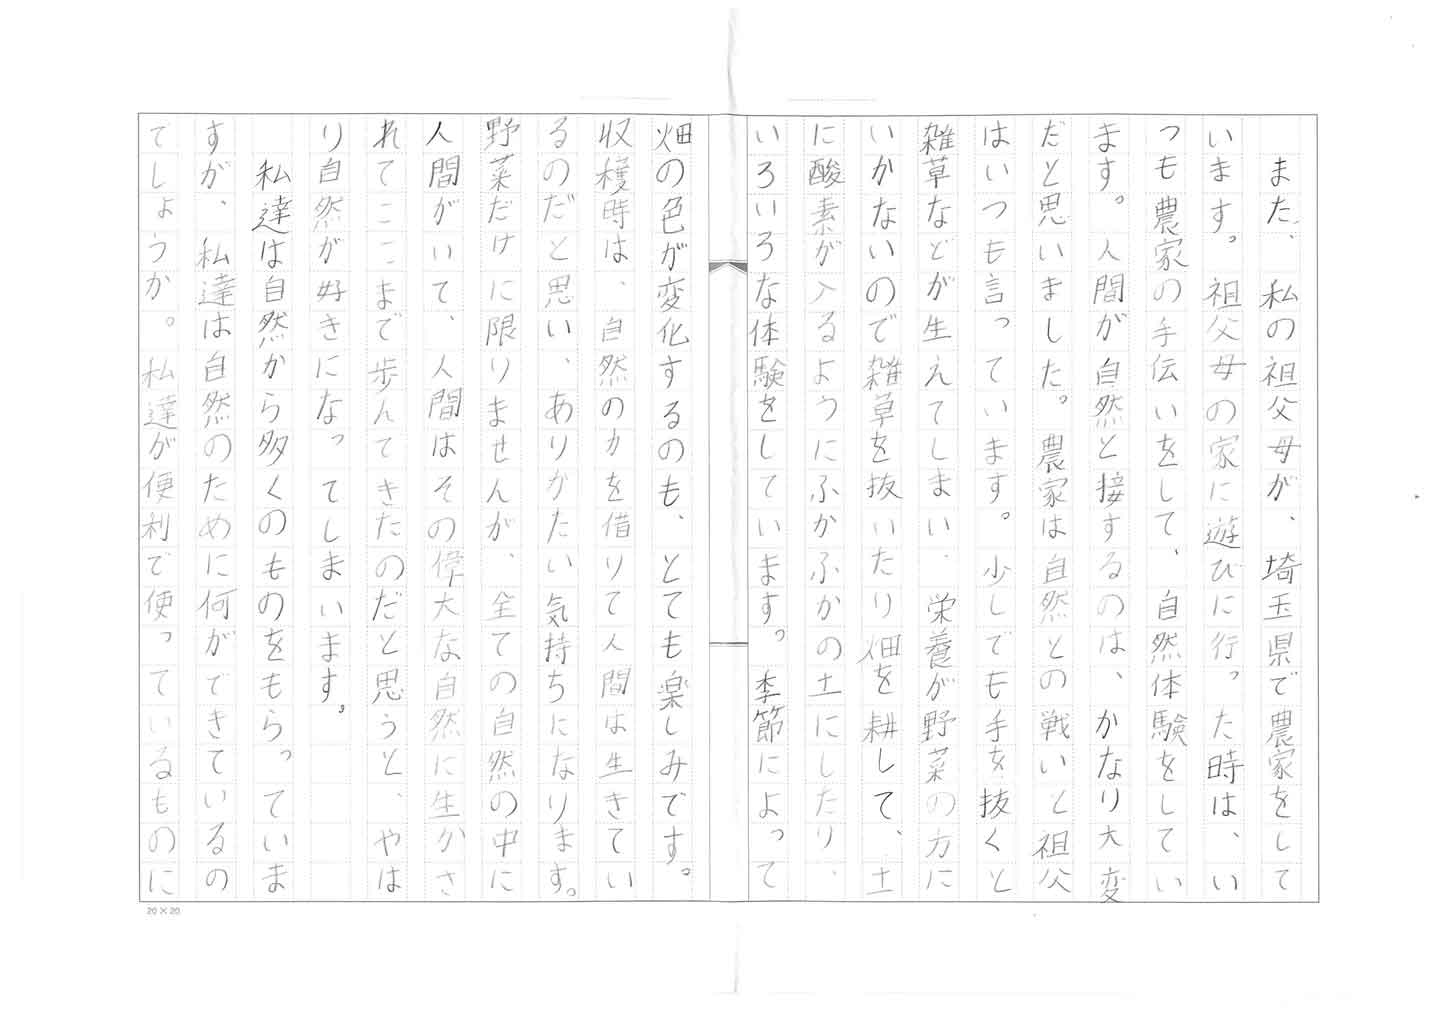 また、私の祖父母が、埼玉県で農家をして
います。祖父母の家に遊びに行った時は、い
つも農家の手伝いをして、自然体験をしてい
ます。人間が自然と接するのは、かなり大変
だと思いました。農家は自然との戦いと祖父
はいつも言っています。少しでも手を抜くと
雑草などが生えてしまい、栄養が野菜の方に
いかないので雑草を抜いたり畑を耕して、土
に酸素が入るようにふかふかの土にしたり、
いろいろな体験をしています。季節によって
畑の色が変化するのも、とても楽しみです。
収穫時は、自然の力を借りて人間は生きてい
るのだと思い、ありがたい気持ちになります。
野菜だけに限りませんが、全ての自然の中に
人間がいて、人間はその偉大な自然に生かさ
れてここまで歩んてきたのだと思うと、やは
り自然が好きになってしまいます。
　私達は自然から多くのものをもらっていま
すが、私達は自然のために何ができているの
でしょうか。私達が便利で使っているものに
20×20